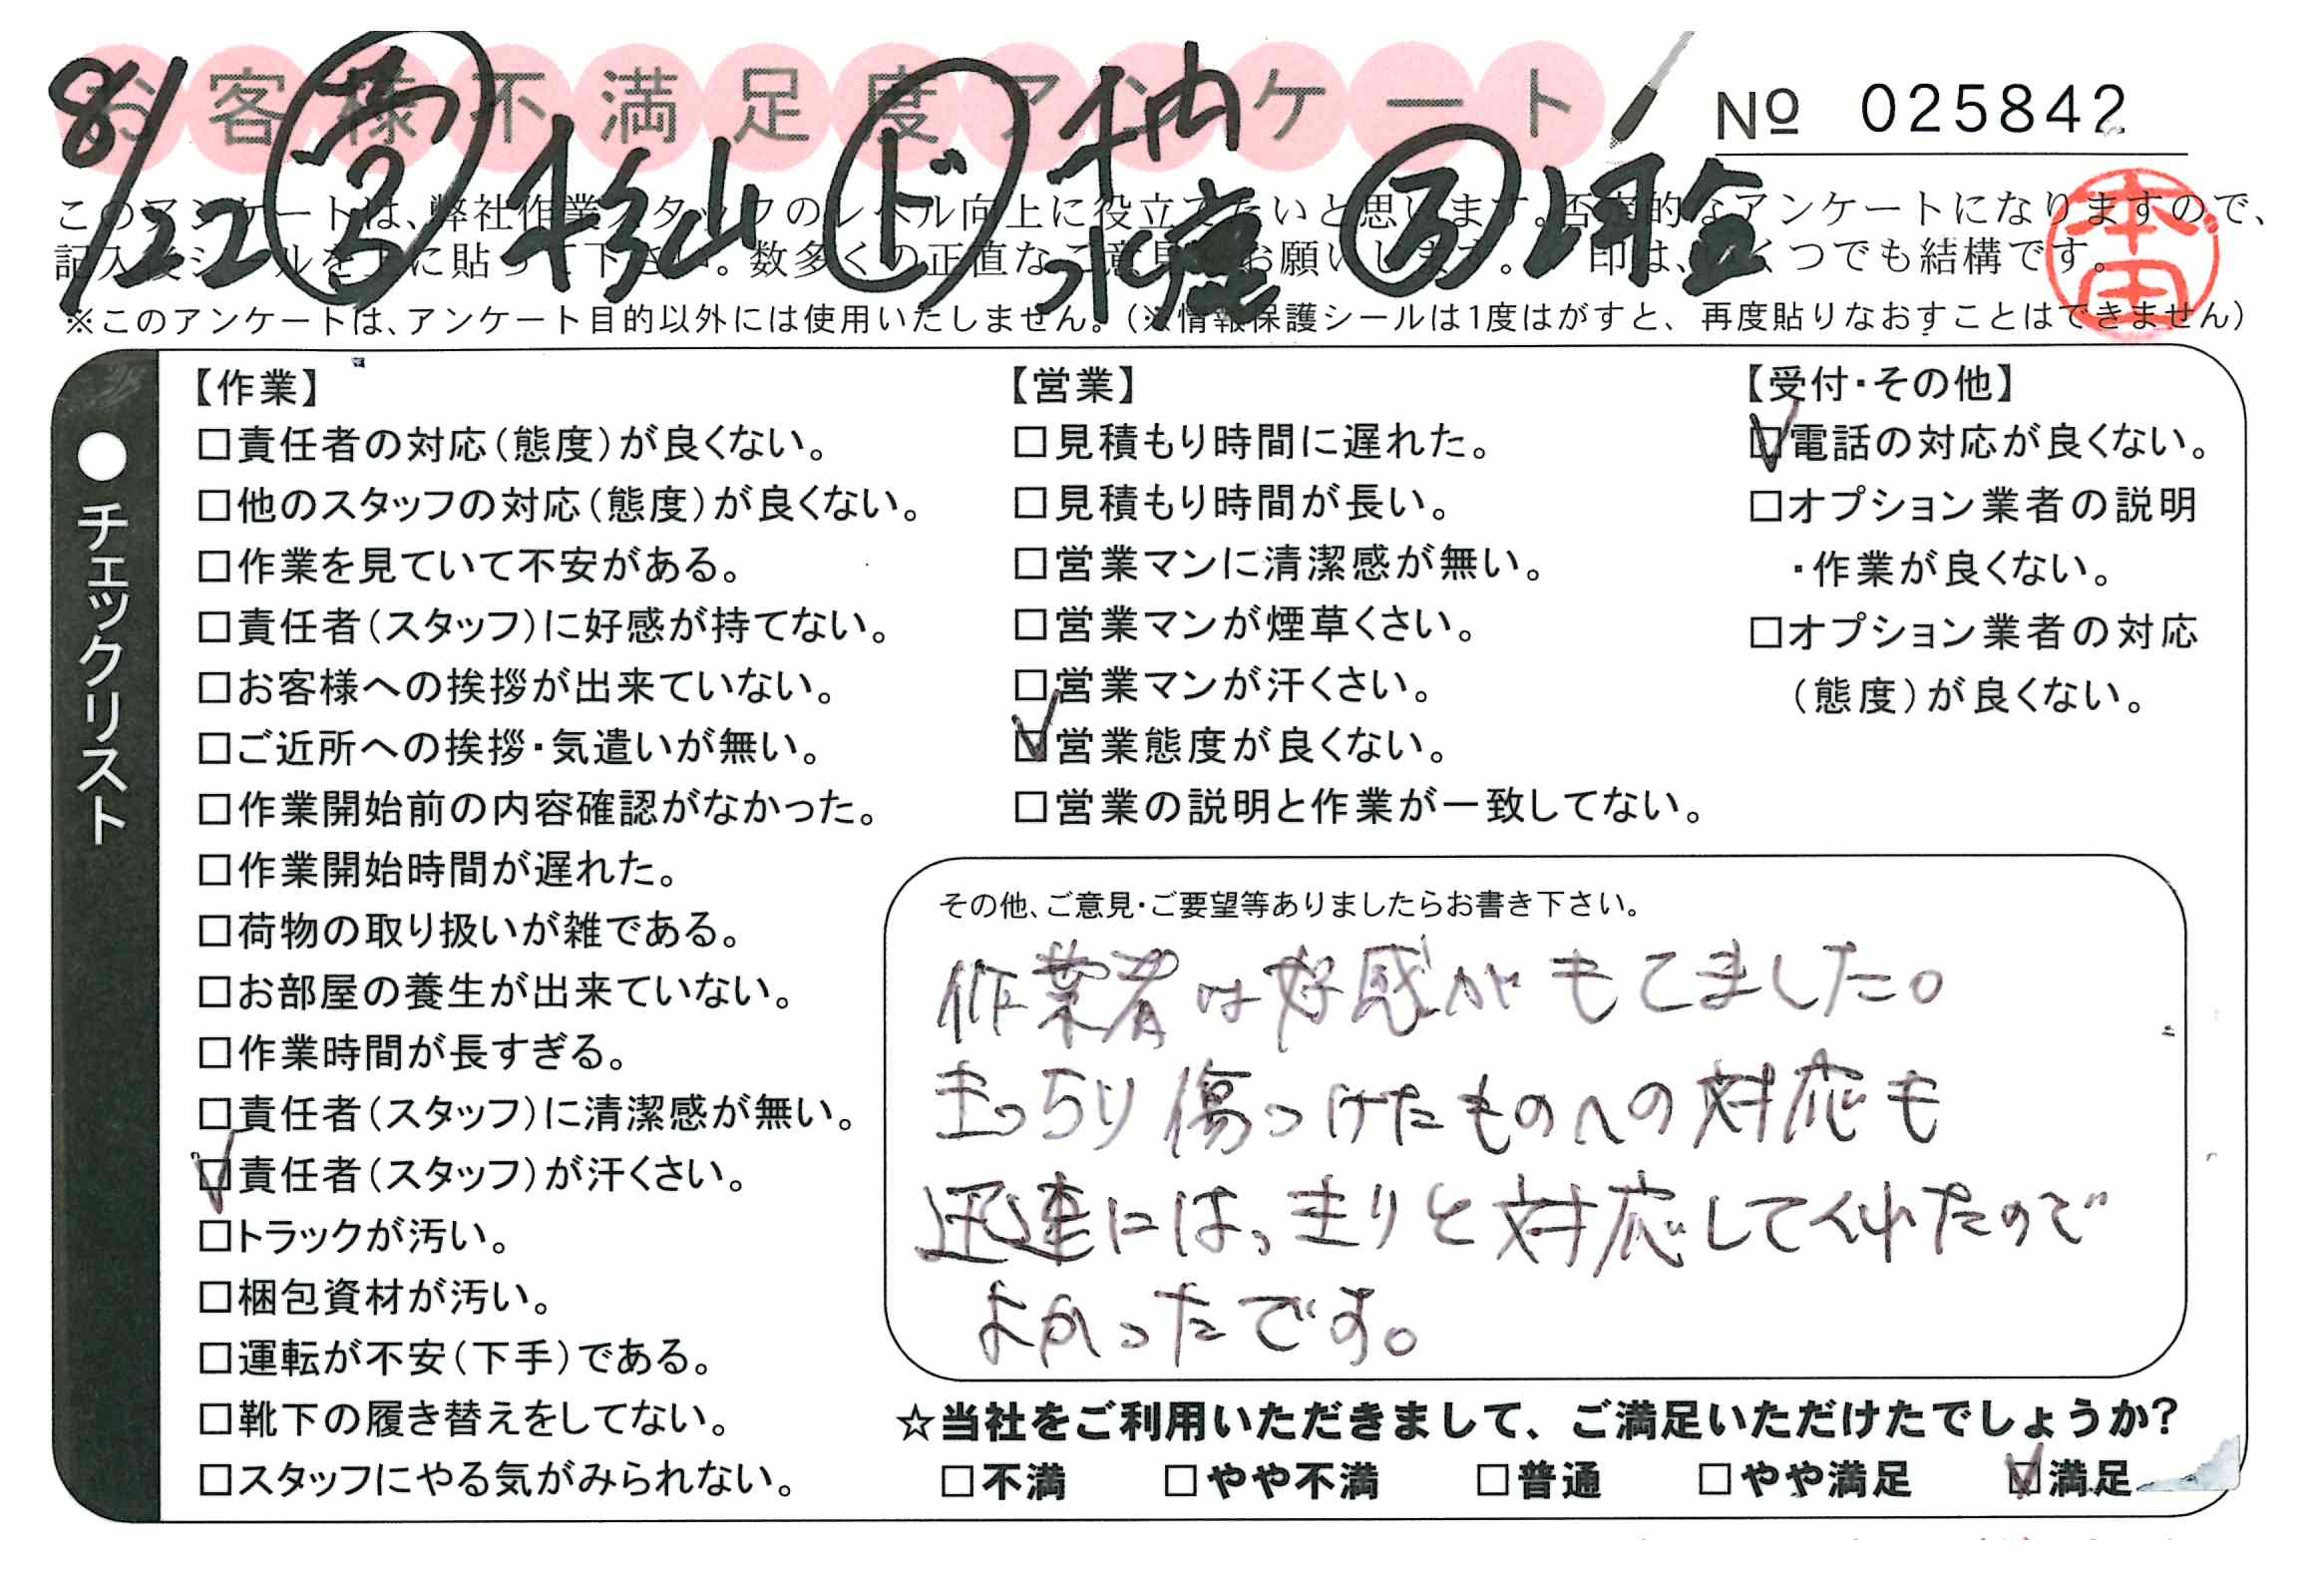 お客様不満足度アンケート
№ 025842
8/22 杉山 ド 柚
このアンケートは、弊社作業スタッフのレベル向上に役立てたいと思います。否定的なアンケートになりますので、
記入後シールを上に貼って下さい。数多くの正直なご意見をお願いします。 印は、いくつでも結構です。
本田
※このアンケートは、アンケート目的以外には使用いたしません。(※情報保護シールは1度はがすと、再度貼りなおすことはできません)
●チェックリスト
【作業】
□責任者の対応(態度)が良くない。
□他のスタッフの対応(態度)が良くない。
□作業を見ていて不安がある。
□責任者(スタッフ)に好感が持てない。
□お客様への挨拶が出来ていない。
□ご近所への挨拶・気遣いが無い。
□作業開始前の内容確認がなかった。
□作業開始時間が遅れた。
□荷物の取り扱いが雑である。
□お部屋の養生が出来ていない。
□作業時間が長すぎる。
□責任者(スタッフ)に清潔感が無い。
☑責任者(スタッフ)が汗くさい。
□トラックが汚い。
□梱包資材が汚い。
□運転が不安(下手)である。
□靴下の履き替えをしてない。
□スタッフにやる気がみられない。
【営業】
□見積もり時間に遅れた。
□見積もり時間が長い。
□営業マンに清潔感が無い。
□営業マンが煙草くさい。
□営業マンが汗くさい。
☑営業態度が良くない。
□営業の説明と作業が一致してない。
【受付・その他】
☑電話の対応が良くない。
□オプション業者の説明
・作業が良くない。
□オプション業者の対応
(態度)が良くない。
その他、ご意見・ご要望等ありましたらお書き下さい。
作業者は好感がもてました。
傷つけたものへの対応も
迅速には、きりと対応してくれたので
よかったです。
☆当社をご利用いただきまして、ご満足いただけたでしょうか?
□不満 □やや不満 □普通 □やや満足 ☑満足